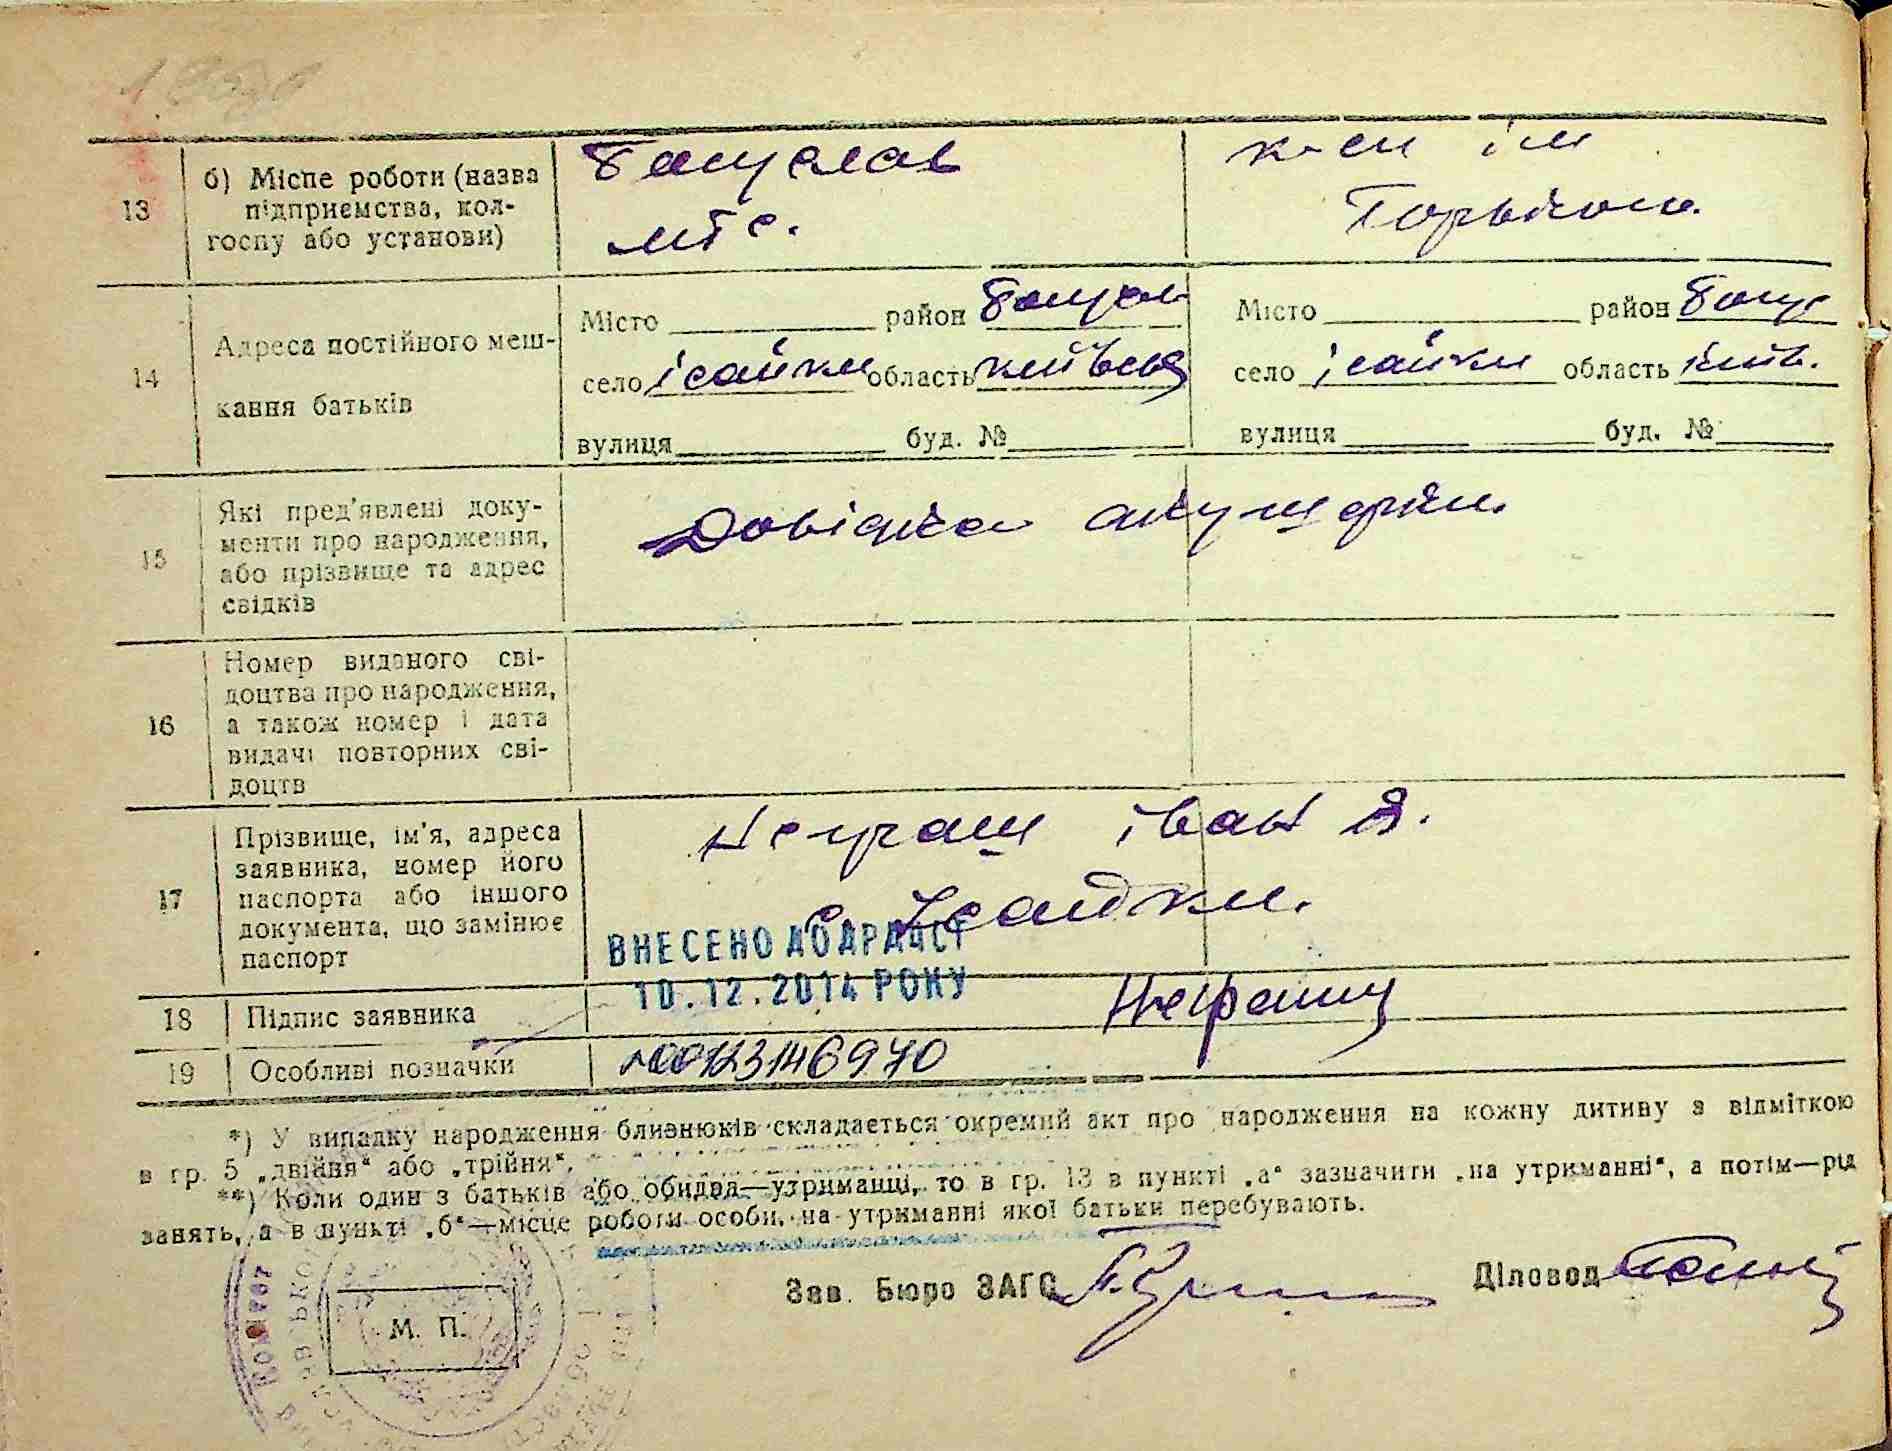 13
б) Місце роботи (назва
підприємства, кол-
госпу або установи)
Богуслав
мтс.
к-сп ім
Горького.
14
Адреса постійного меш-
кання батьків
Місто район Богусл
село Ісайки область київськ
вулиця буд. №
Місто район Богус
село Ісайки область київ.
вулиця буд. №
15
Які пред'явлені доку-
менти про народження,
або прізвище та адрес
свідків
Довідка акушерки.
16
Номер виданого сві-
доцтва про народження,
а також номер і дата
видачі повторних сві-
доцтв
17
Прізвище, ім'я, адреса
заявника, номер його
паспорта або іншого
документа, що замінює
паспорт
Іван Я.
с Ісайки.
ВНЕСЕНО ДО ДРАЦСГ
10.12.2014 РОКУ
18
Підпис заявника
19
Особливі позначки
№00123146970
*) У випадку народження близнюків складається окремий акт про народження на кожну дитину з відміткою
в гр. 5 „двійня“ або „трійня“.
**) Коли один з батьків або обидва—утриманці, то в гр. 13 в пункті „а“ зазначити „на утриманні“, а потім—рід
занять, а в пункті „б“—місце роботи особи, на утриманні якої батьки перебувають.
Зав. Бюро ЗАГС
Діловод
М. П.